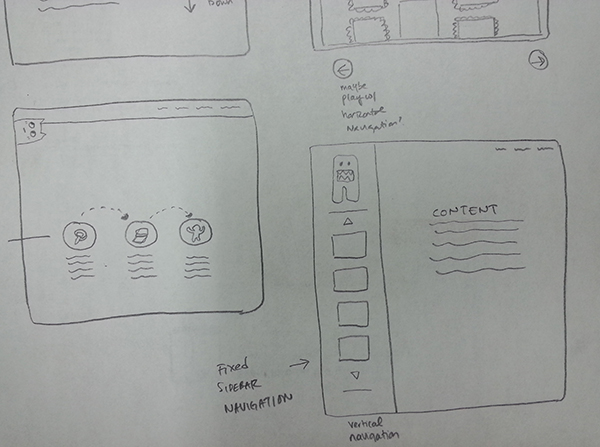 Down
maybe
play w/
horizontal
navigation?
CONTENT
Fixed
SIDEBAR
NAVIGATION
vertical
navigation